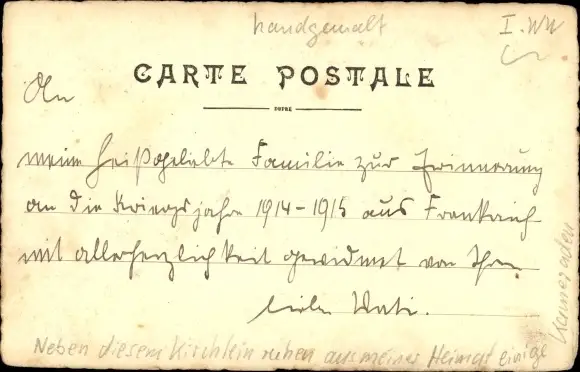 handgemalt
I. WK
CARTE POSTALE
DUPRÉ
An
meine heißgeliebte Familie zur Erinnerung
an die Kriegsjahre 1914-1915 aus Frankreich
mit allerherzlichkeit gewidmet von Ihrem
lieben Vati.
Neben diesem Kirchlein ruhen aus meiner Heimat einige
Kameraden